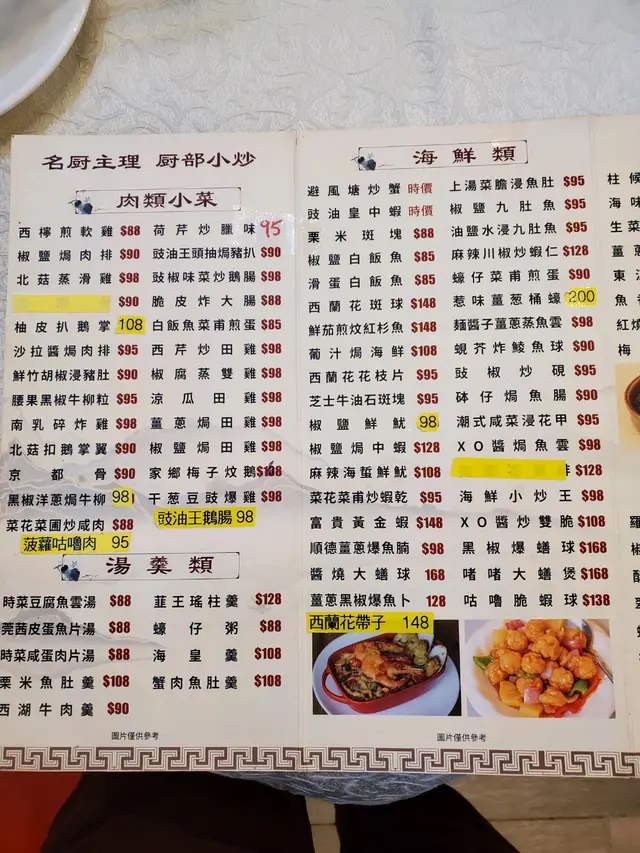 名厨主理 厨部小炒
肉類小菜
西檸煎軟雞 $88
椒鹽焗肉排 $90
北菇蒸滑雞 $98
$90
柚皮扒鵝掌 108
沙拉醬焗肉排 $95
鮮竹胡椒浸豬肚 $90
腰果黑椒牛柳粒 $95
南乳碎炸雞 $98
北菇扣鵝掌翼 $90
京都骨 $90
黑椒洋蔥焗牛柳 98
菜花菜圃炒咸肉 $88
菠蘿咕嚕肉 95
荷芹炒臘味 95
豉油王頭抽焗豬扒 $90
豉椒味菜炒鵝腸 $98
脆皮炸大腸 $88
白飯魚菜甫煎蛋 $85
西芹炒田雞 $98
椒腐蒸雙雞 $98
涼瓜田雞 $98
薑蔥焗田雞 $98
椒鹽焗田雞 $98
家鄉梅子炆鵝
干葱豆豉爆雞 $98
豉油王鵝腸 98
湯羹類
時菜豆腐魚雲湯 $88
莞茜皮蛋魚片湯 $88
時菜咸蛋肉片湯 $88
栗米魚肚羹 $108
西湖牛肉羹 $90
韮王瑤柱羹 $128
蠔仔粥 $88
海皇羹 $108
蟹肉魚肚羹 $108
圖片僅供參考
海鮮類
避風塘炒蟹 時價
豉油皇中蝦 時價
栗米斑塊 $88
椒鹽白飯魚 $85
滑蛋白飯魚 $85
西蘭花斑球 $148
鮮茄煎炆紅杉魚 $148
葡汁焗海鮮 $108
西蘭花花枝片 $95
芝士牛油石斑塊 $95
椒鹽鮮魷 98
椒鹽焗中蝦 $128
麻辣海蜇鮮魷 $108
菜花菜甫炒蝦乾 $95
富貴黃金蝦 $148
順德薑蔥爆魚腩 $98
醬燒大蟮球 168
薑蔥黑椒爆魚卜 128
西蘭花帶子 148
上湯菜膽浸魚肚 $95
椒鹽九肚魚 $95
油鹽水浸九肚魚 $95
麻辣川椒炒蝦仁 $128
蠔仔菜甫煎蛋 $90
惹味薑葱桶蠔 200
麵醬子薑蔥蒸魚雲 $98
蜆芥炸鯪魚球 $90
豉椒炒蜆 $95
砵仔焗魚腸 $90
潮式咸菜浸花甲 $95
XO醬焗魚雲 $98
$128
海鮮小炒王 $98
XO醬炒雙脆 $108
黑椒爆蟮球 $168
啫啫大蟮煲 $168
咕嚕脆蝦球 $138
圖片僅供參考
柱候
海味
生菜
薑
東江
魚
紅燒
梅